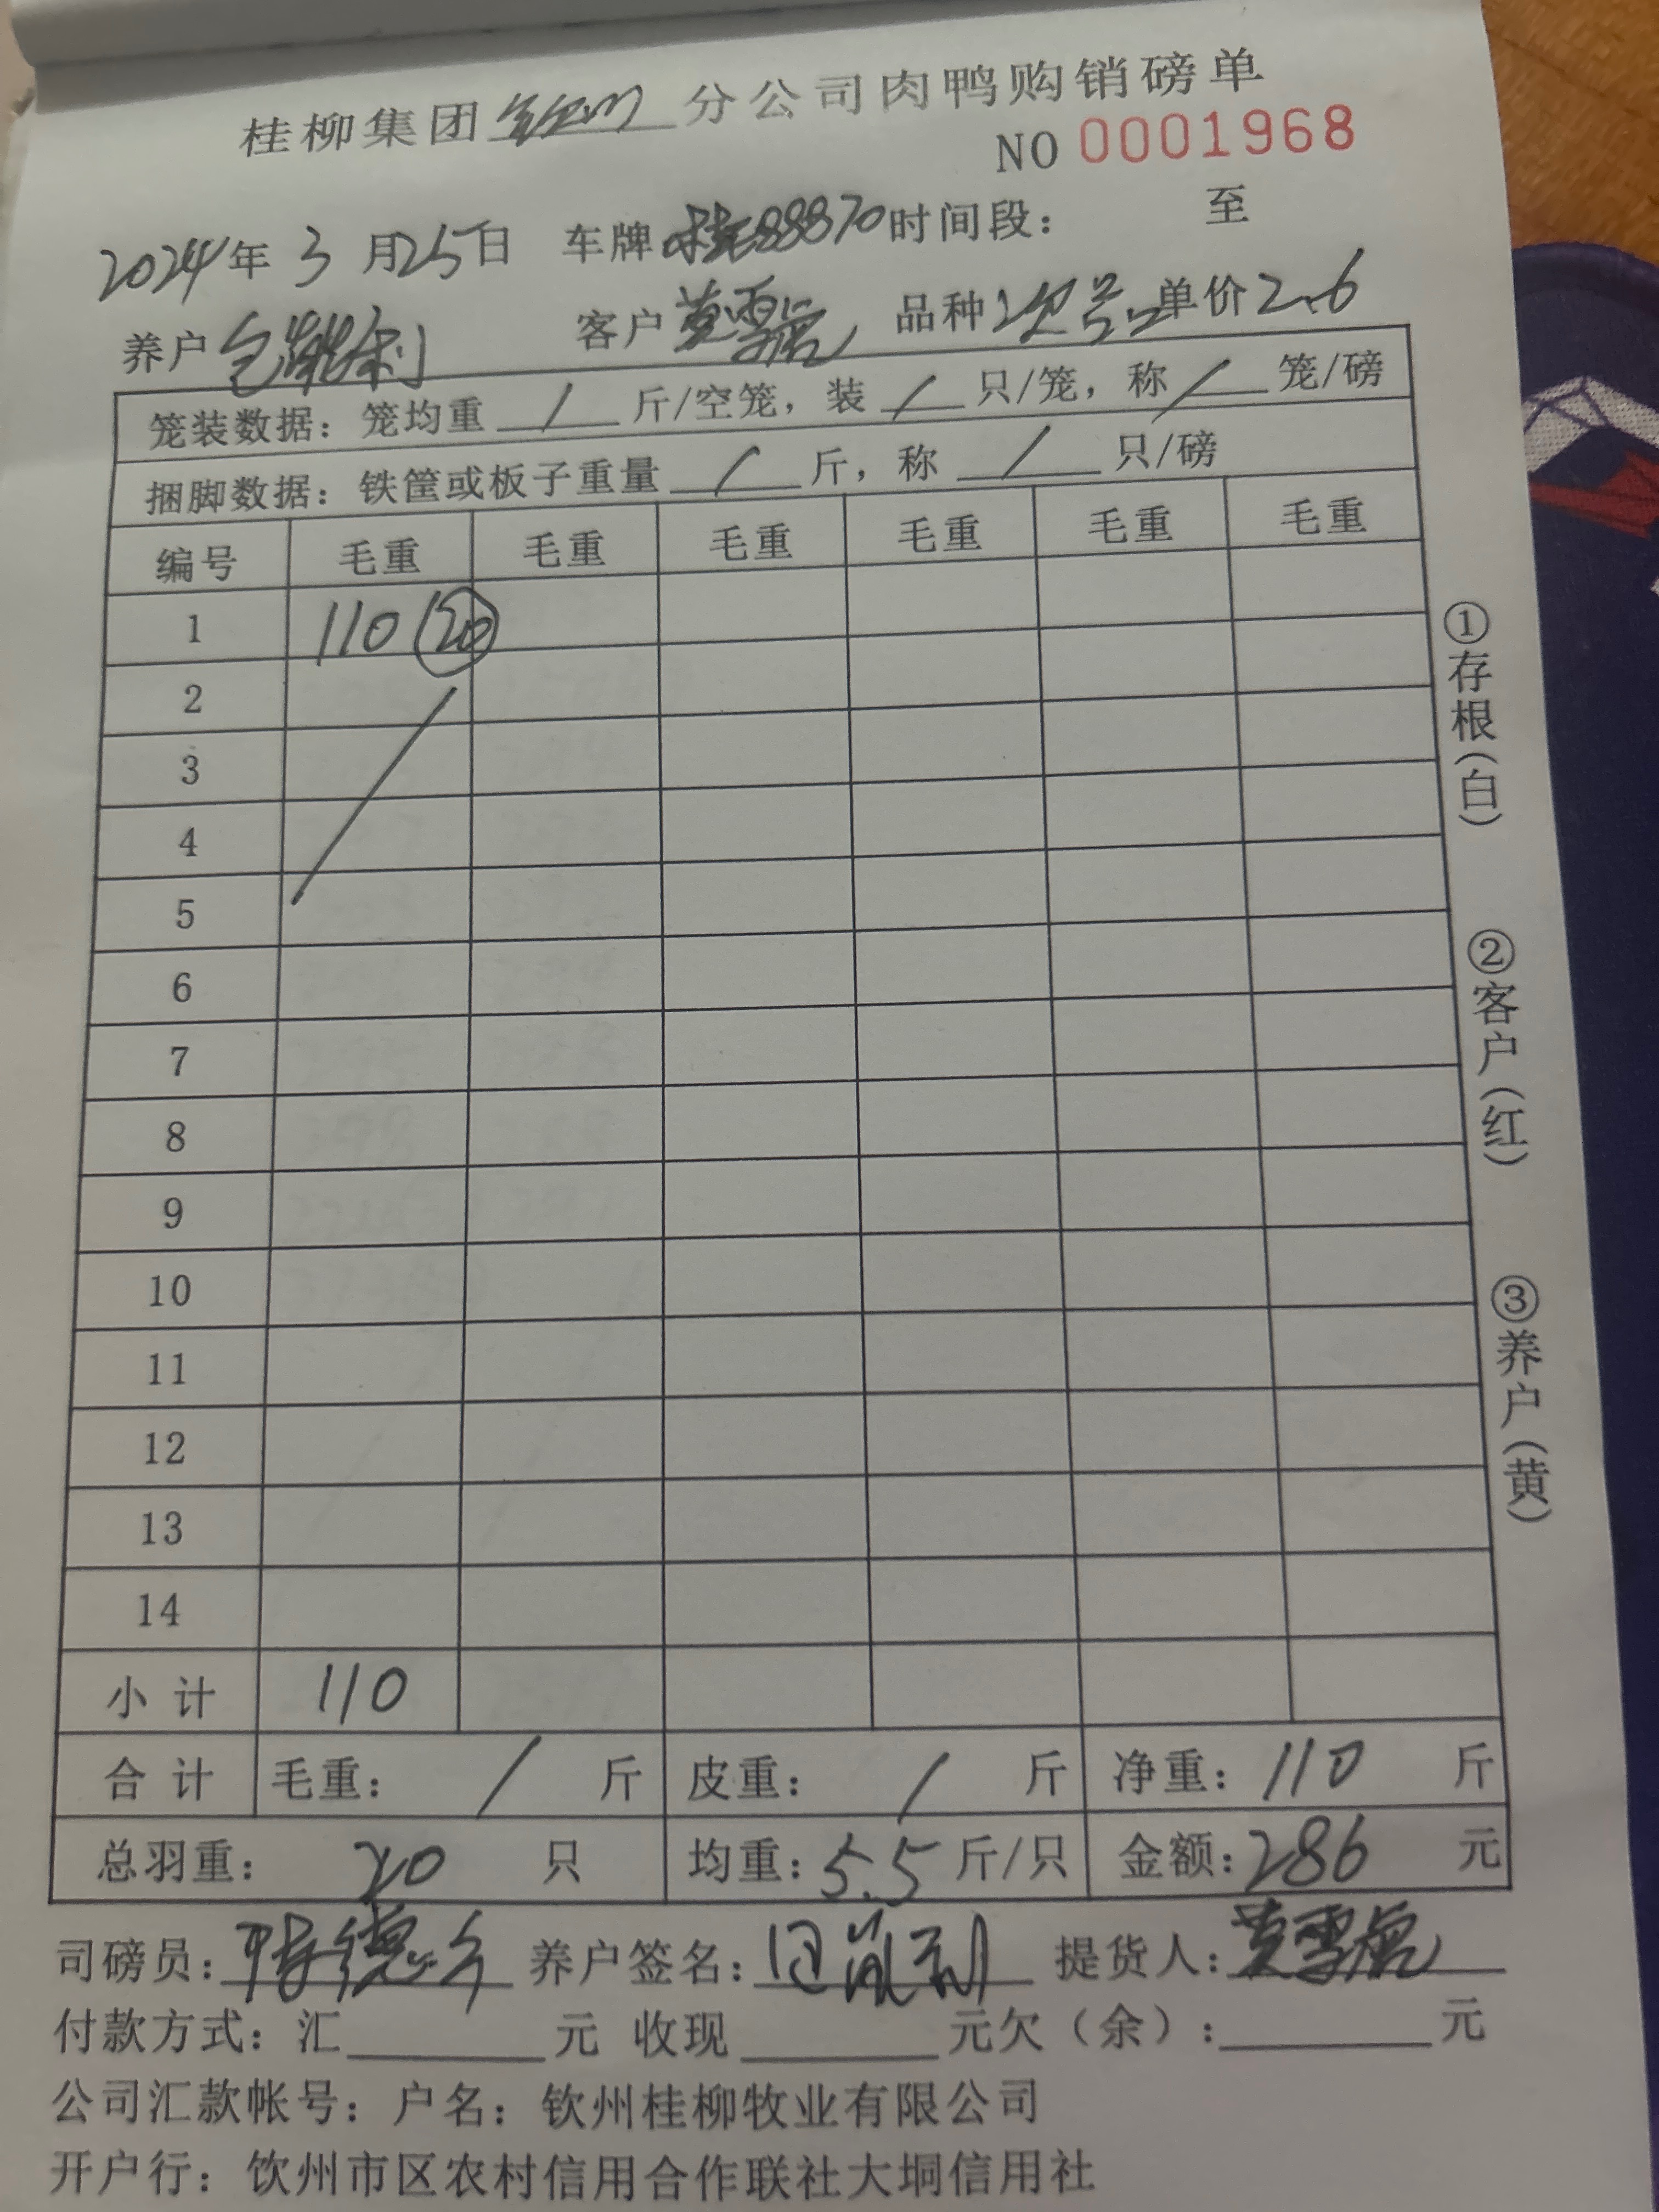 桂柳集团钦州分公司肉鸭购销磅单
NO 0001968
2024年3月25日 车牌 88870 时间段: 至
养户 客户 莫雪 品种 次号 单价 2.6
笼装数据: 笼均重 / 斤/空笼, 装 / 只/笼, 称 / 笼/磅
捆脚数据: 铁筐或板子重量 / 斤, 称 / 只/磅
编号 毛重 毛重 毛重 毛重 毛重 毛重
1 110 (20)
2
3
4
5
6
7
8
9
10
11
12
13
14
小计 110
合计 毛重: / 斤 皮重: / 斤 净重: 110 斤
总羽重: 20 只 均重: 5.5 斤/只 金额: 286 元
司磅员: 德 养户签名: 提货人: 莫雪
付款方式: 汇 元 收现 元欠(余): 元
公司汇款帐号: 户名: 钦州桂柳牧业有限公司
开户行: 钦州市区农村信用合作联社大垌信用社
①存根(白)
②客户(红)
③养户(黄)